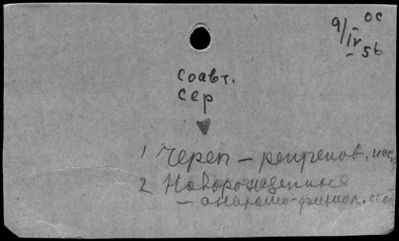 9/IV-56 ос
соавт.
сер
1 Череп – рентгенов. исс
2 Новорожденные
– анатомо-физиол. осо